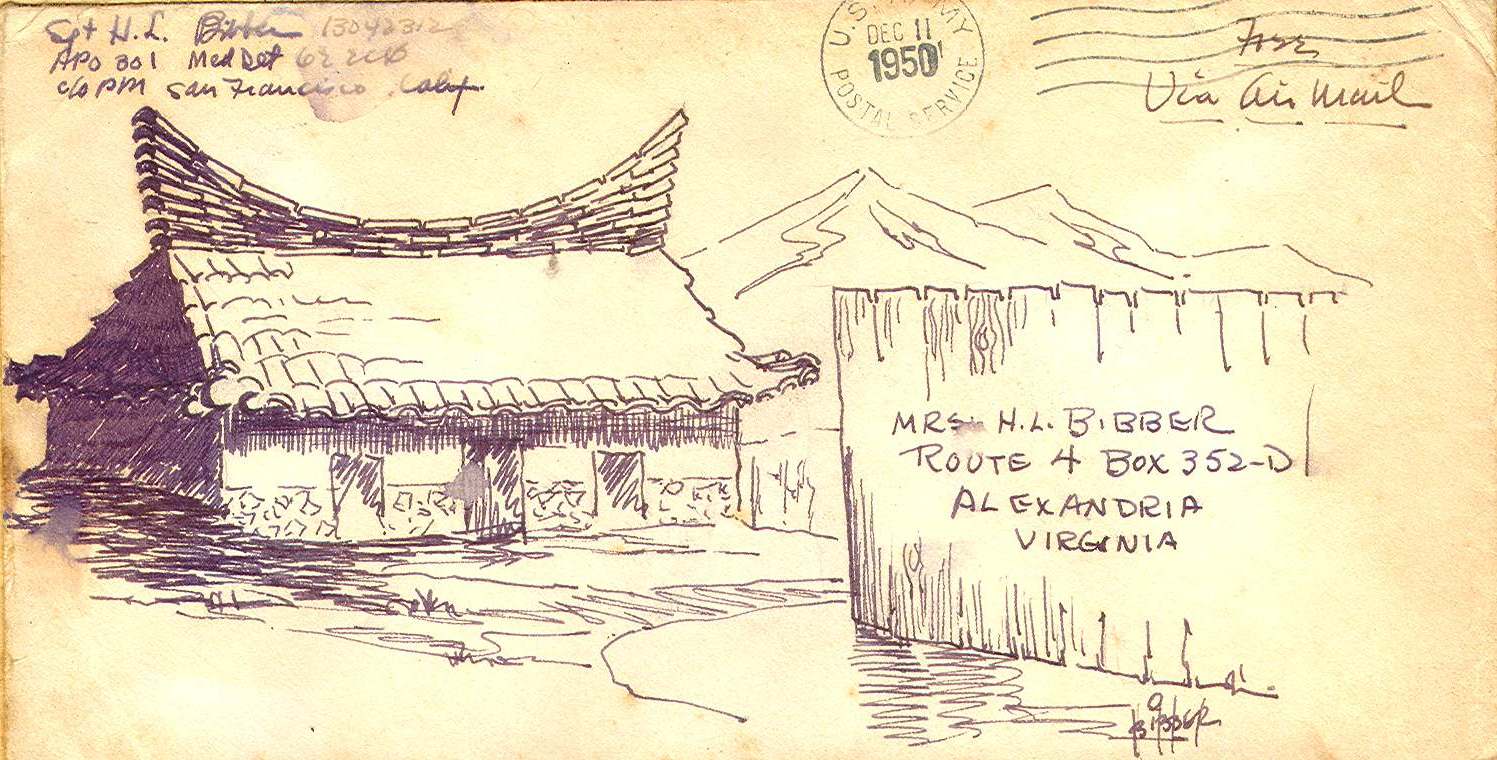 Sgt H.L. Bibber 13042312
APO 301 Med Det
c/o PM San Francisco, Calif.
U.S. ARMY
DEC 11
1950
POSTAL SERVICE
Free
Via Air Mail
MRS H.L. BIBBER
ROUTE 4 BOX 352-D
ALEXANDRIA
VIRGINIA
BIBBER